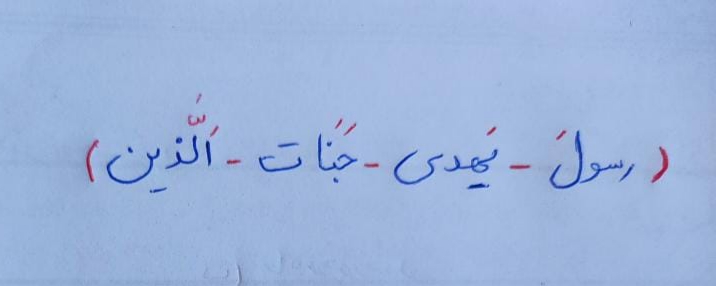 ( رسولَ - یَهدی - جَنَات - اَلَّذین )